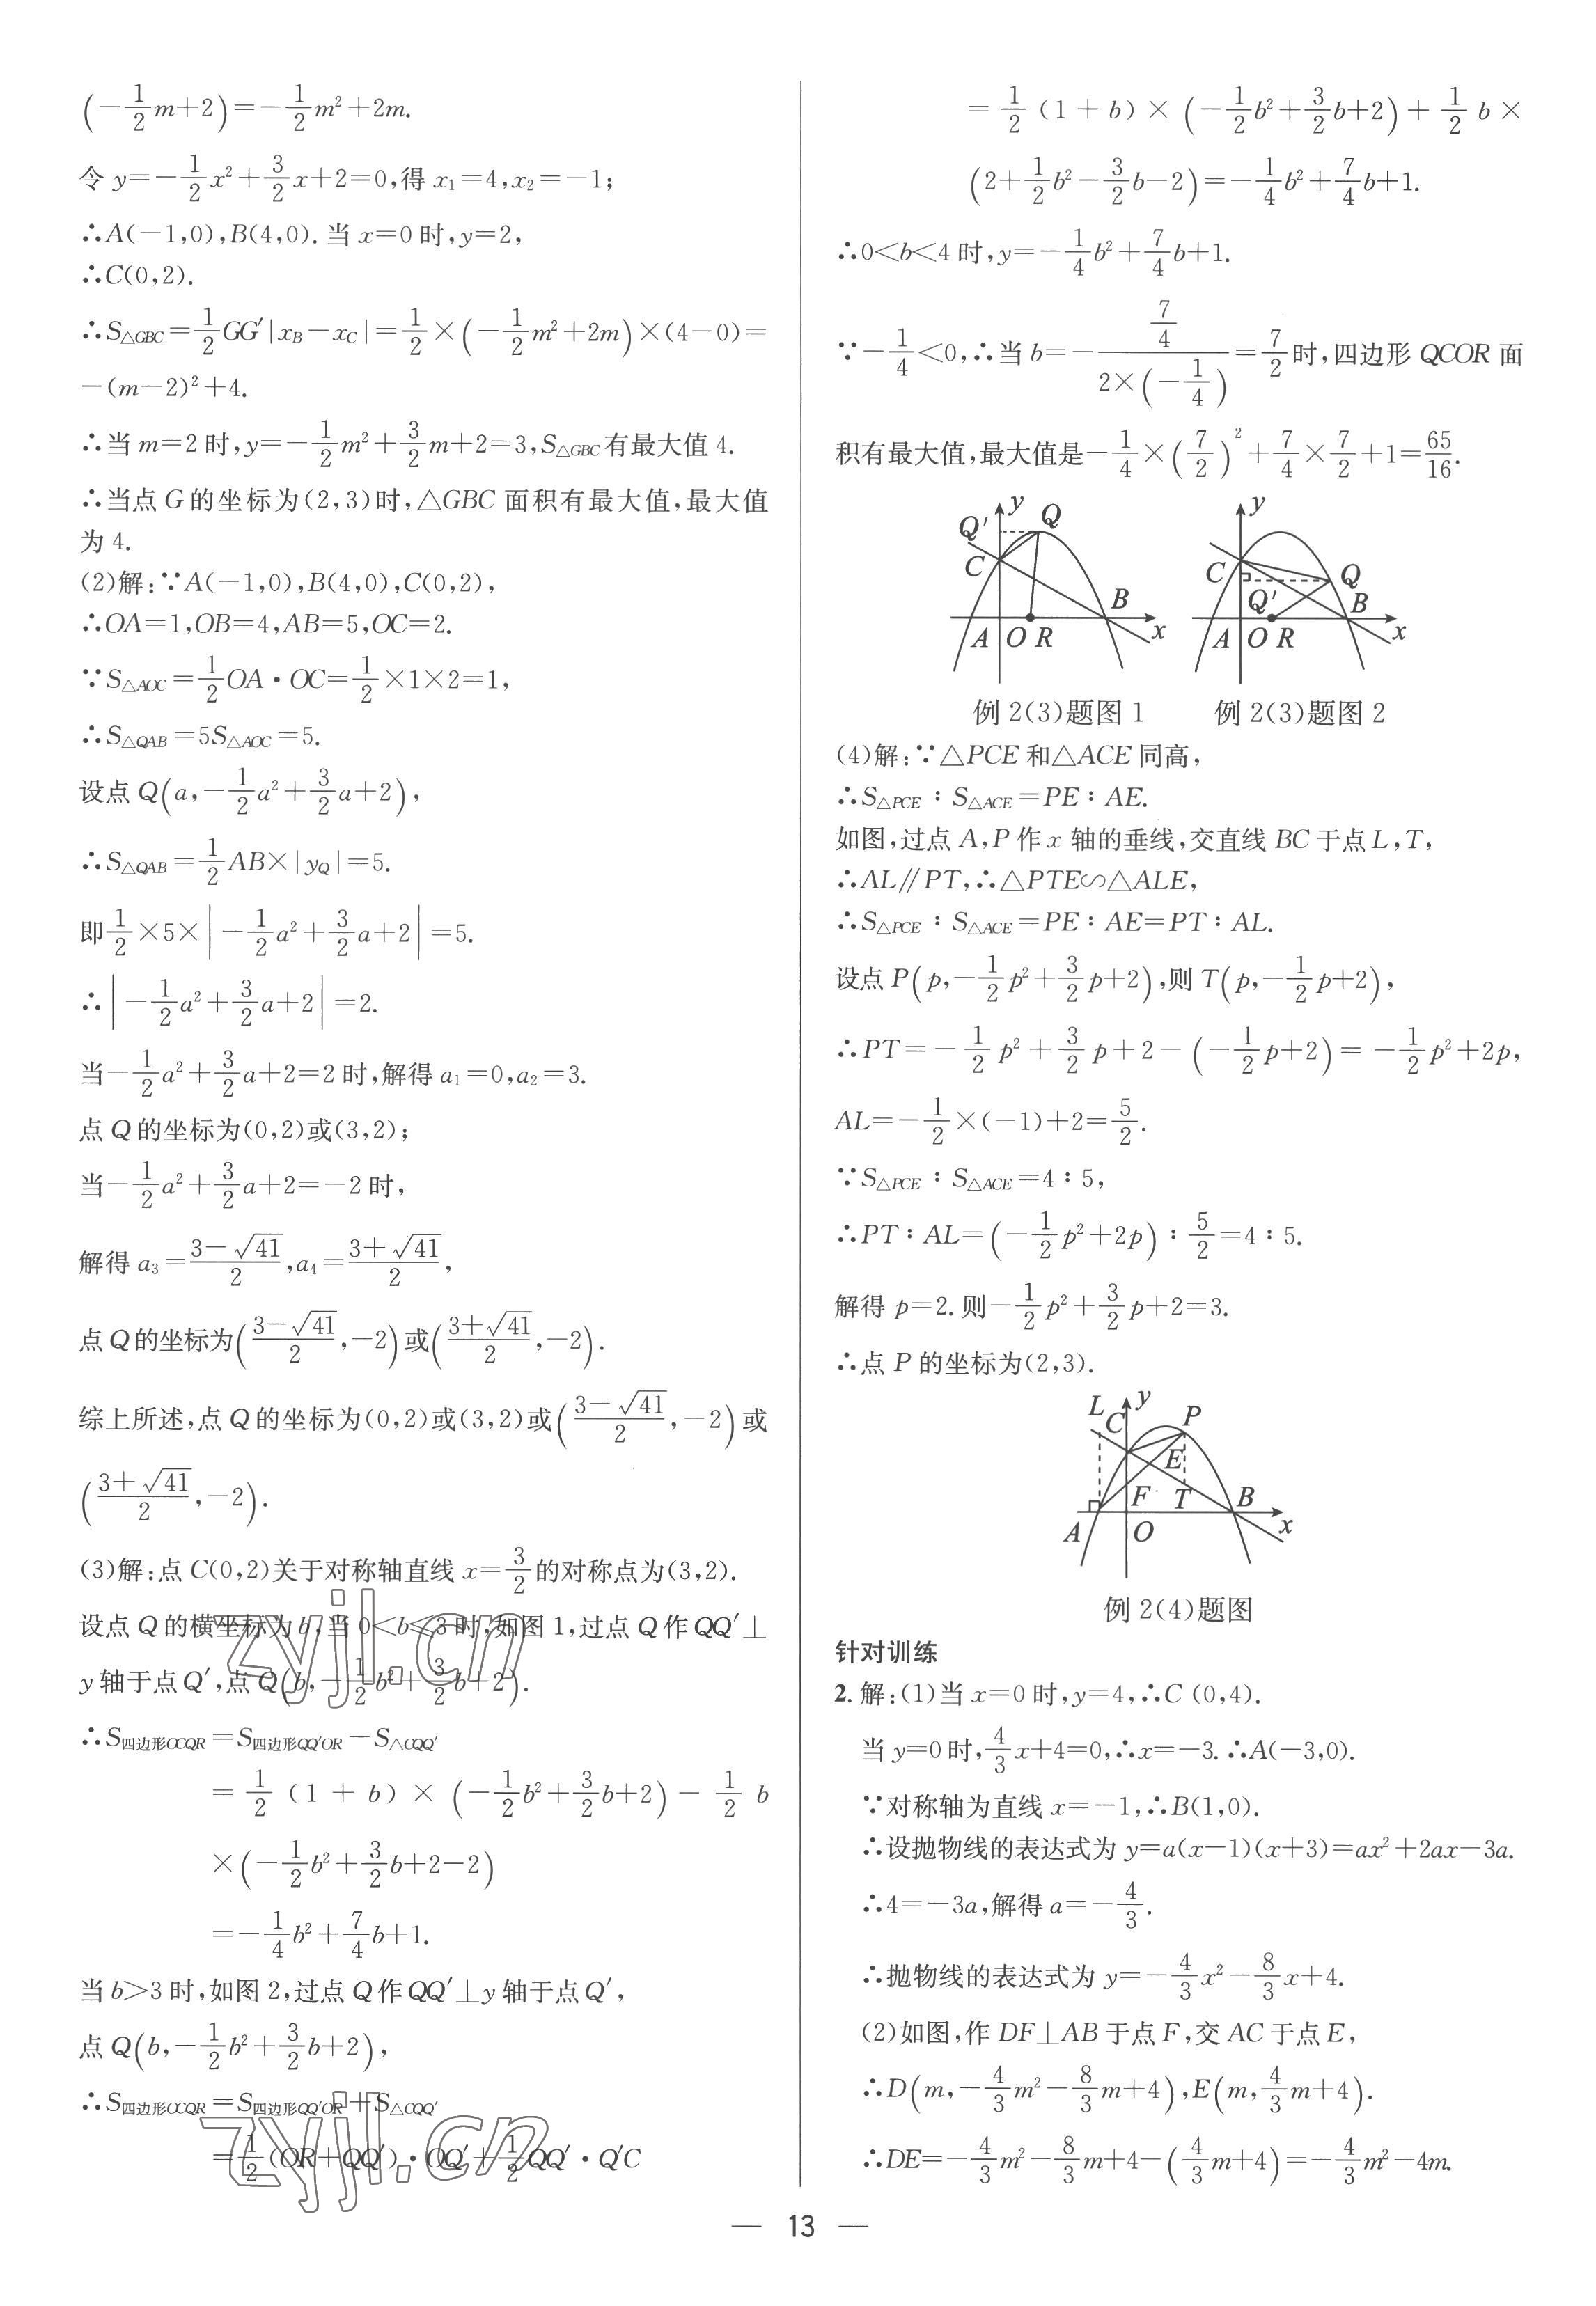 (-1/2 m+2)=-1/2 m²+2m.
令 y=-1/2 x²+3/2 x+2=0,得 x₁=4,x₂=-1;
∴A(-1,0),B(4,0).当 x=0 时,y=2,
∴C(0,2).
∴S△GBC=1/2 GG′|x_B-x_C|=1/2×(-1/2 m²+2m)×(4-0)=
-(m-2)²+4.
∴当 m=2 时,y=-1/2 m²+3/2 m+2=3,S△GBC有最大值 4.
∴当点 G 的坐标为(2,3)时,△GBC 面积有最大值,最大值
为 4.
(2)解:∵A(-1,0),B(4,0),C(0,2),
∴OA=1,OB=4,AB=5,OC=2.
∵S△AOC=1/2 OA·OC=1/2×1×2=1,
∴S△QAB=5S△AOC=5.
设点 Q(a,-1/2 a²+3/2 a+2),
∴S△QAB=1/2 AB×|y_Q|=5.
即1/2×5×|-1/2 a²+3/2 a+2|=5.
∴|-1/2 a²+3/2 a+2|=2.
当-1/2 a²+3/2 a+2=2 时,解得 a₁=0,a₂=3.
点 Q 的坐标为(0,2)或(3,2);
当-1/2 a²+3/2 a+2=-2 时,
解得 a₃=(3-√41)/2,a₄=(3+√41)/2,
点 Q的坐标为((3-√41)/2,-2)或((3+√41)/2,-2).
综上所述,点 Q 的坐标为(0,2)或(3,2)或((3-√41)/2,-2)或
((3+√41)/2,-2).
(3)解:点 C(0,2)关于对称轴直线 x=3/2的对称点为(3,2).
设点 Q 的横坐标为 b,当 0<b≤3 时,如图 1,过点 Q 作 QQ′⊥
y 轴于点 Q′,点 Q(b,-1/2 b²+3/2 b+2).
∴S四边形OCQR=S四边形QQ′OR-S△CQQ′
=1/2(1+b)×(-1/2 b²+3/2 b+2)-1/2 b
×(-1/2 b²+3/2 b+2-2)
=-1/4 b²+7/4 b+1.
当 b>3 时,如图 2,过点 Q 作 QQ′⊥y 轴于点 Q′,
点 Q(b,-1/2 b²+3/2 b+2),
∴S四边形OCQR=S四边形QQ′OR+S△CQQ′
=1/2(OR+QQ′)·OQ′+1/2 QQ′·Q′C
=1/2(1+b)×(-1/2 b²+3/2 b+2)+1/2 b×
(2+1/2 b²-3/2 b-2)=-1/4 b²+7/4 b+1.
∴0<b<4 时,y=-1/4 b²+7/4 b+1.
∵-1/4<0,∴当 b=-(7/4)/(2×(-1/4))=7/2时,四边形 QCOR 面
积有最大值,最大值是-1/4×(7/2)²+7/4×7/2+1=65/16.
Q′ y Q C B A O R x
y C Q Q′ B A O R x
例 2(3)题图 1 例 2(3)题图 2
(4)解:∵△PCE 和△ACE 同高,
∴S△PCE∶S△ACE=PE∶AE.
如图,过点 A,P 作 x 轴的垂线,交直线 BC 于点 L,T,
∴AL∥PT,∴△PTE∽△ALE,
∴S△PCE∶S△ACE=PE∶AE=PT∶AL.
设点 P(p,-1/2 p²+3/2 p+2),则 T(p,-1/2 p+2),
∴PT=-1/2 p²+3/2 p+2-(-1/2 p+2)=-1/2 p²+2p,
AL=-1/2×(-1)+2=5/2.
∵S△PCE∶S△ACE=4∶5,
∴PT∶AL=(-1/2 p²+2p)∶5/2=4∶5.
解得 p=2.则-1/2 p²+3/2 p+2=3.
∴点 P 的坐标为(2,3).
L C y P E F T B A O x
例 2(4)题图
针对训练
2.解:(1)当 x=0 时,y=4,∴C (0,4).
当 y=0 时,4/3 x+4=0,∴x=-3.∴A(-3,0).
∵对称轴为直线 x=-1,∴B(1,0).
∴设抛物线的表达式为 y=a(x-1)(x+3)=ax²+2ax-3a.
∴4=-3a,解得 a=-4/3.
∴抛物线的表达式为 y=-4/3 x²-8/3 x+4.
(2)如图,作 DF⊥AB 于点 F,交 AC 于点 E,
∴D(m,-4/3 m²-8/3 m+4),E(m,4/3 m+4).
∴DE=-4/3 m²-8/3 m+4-(4/3 m+4)=-4/3 m²-4m.
— 13 —
zyjl.cn
zyjl.cn